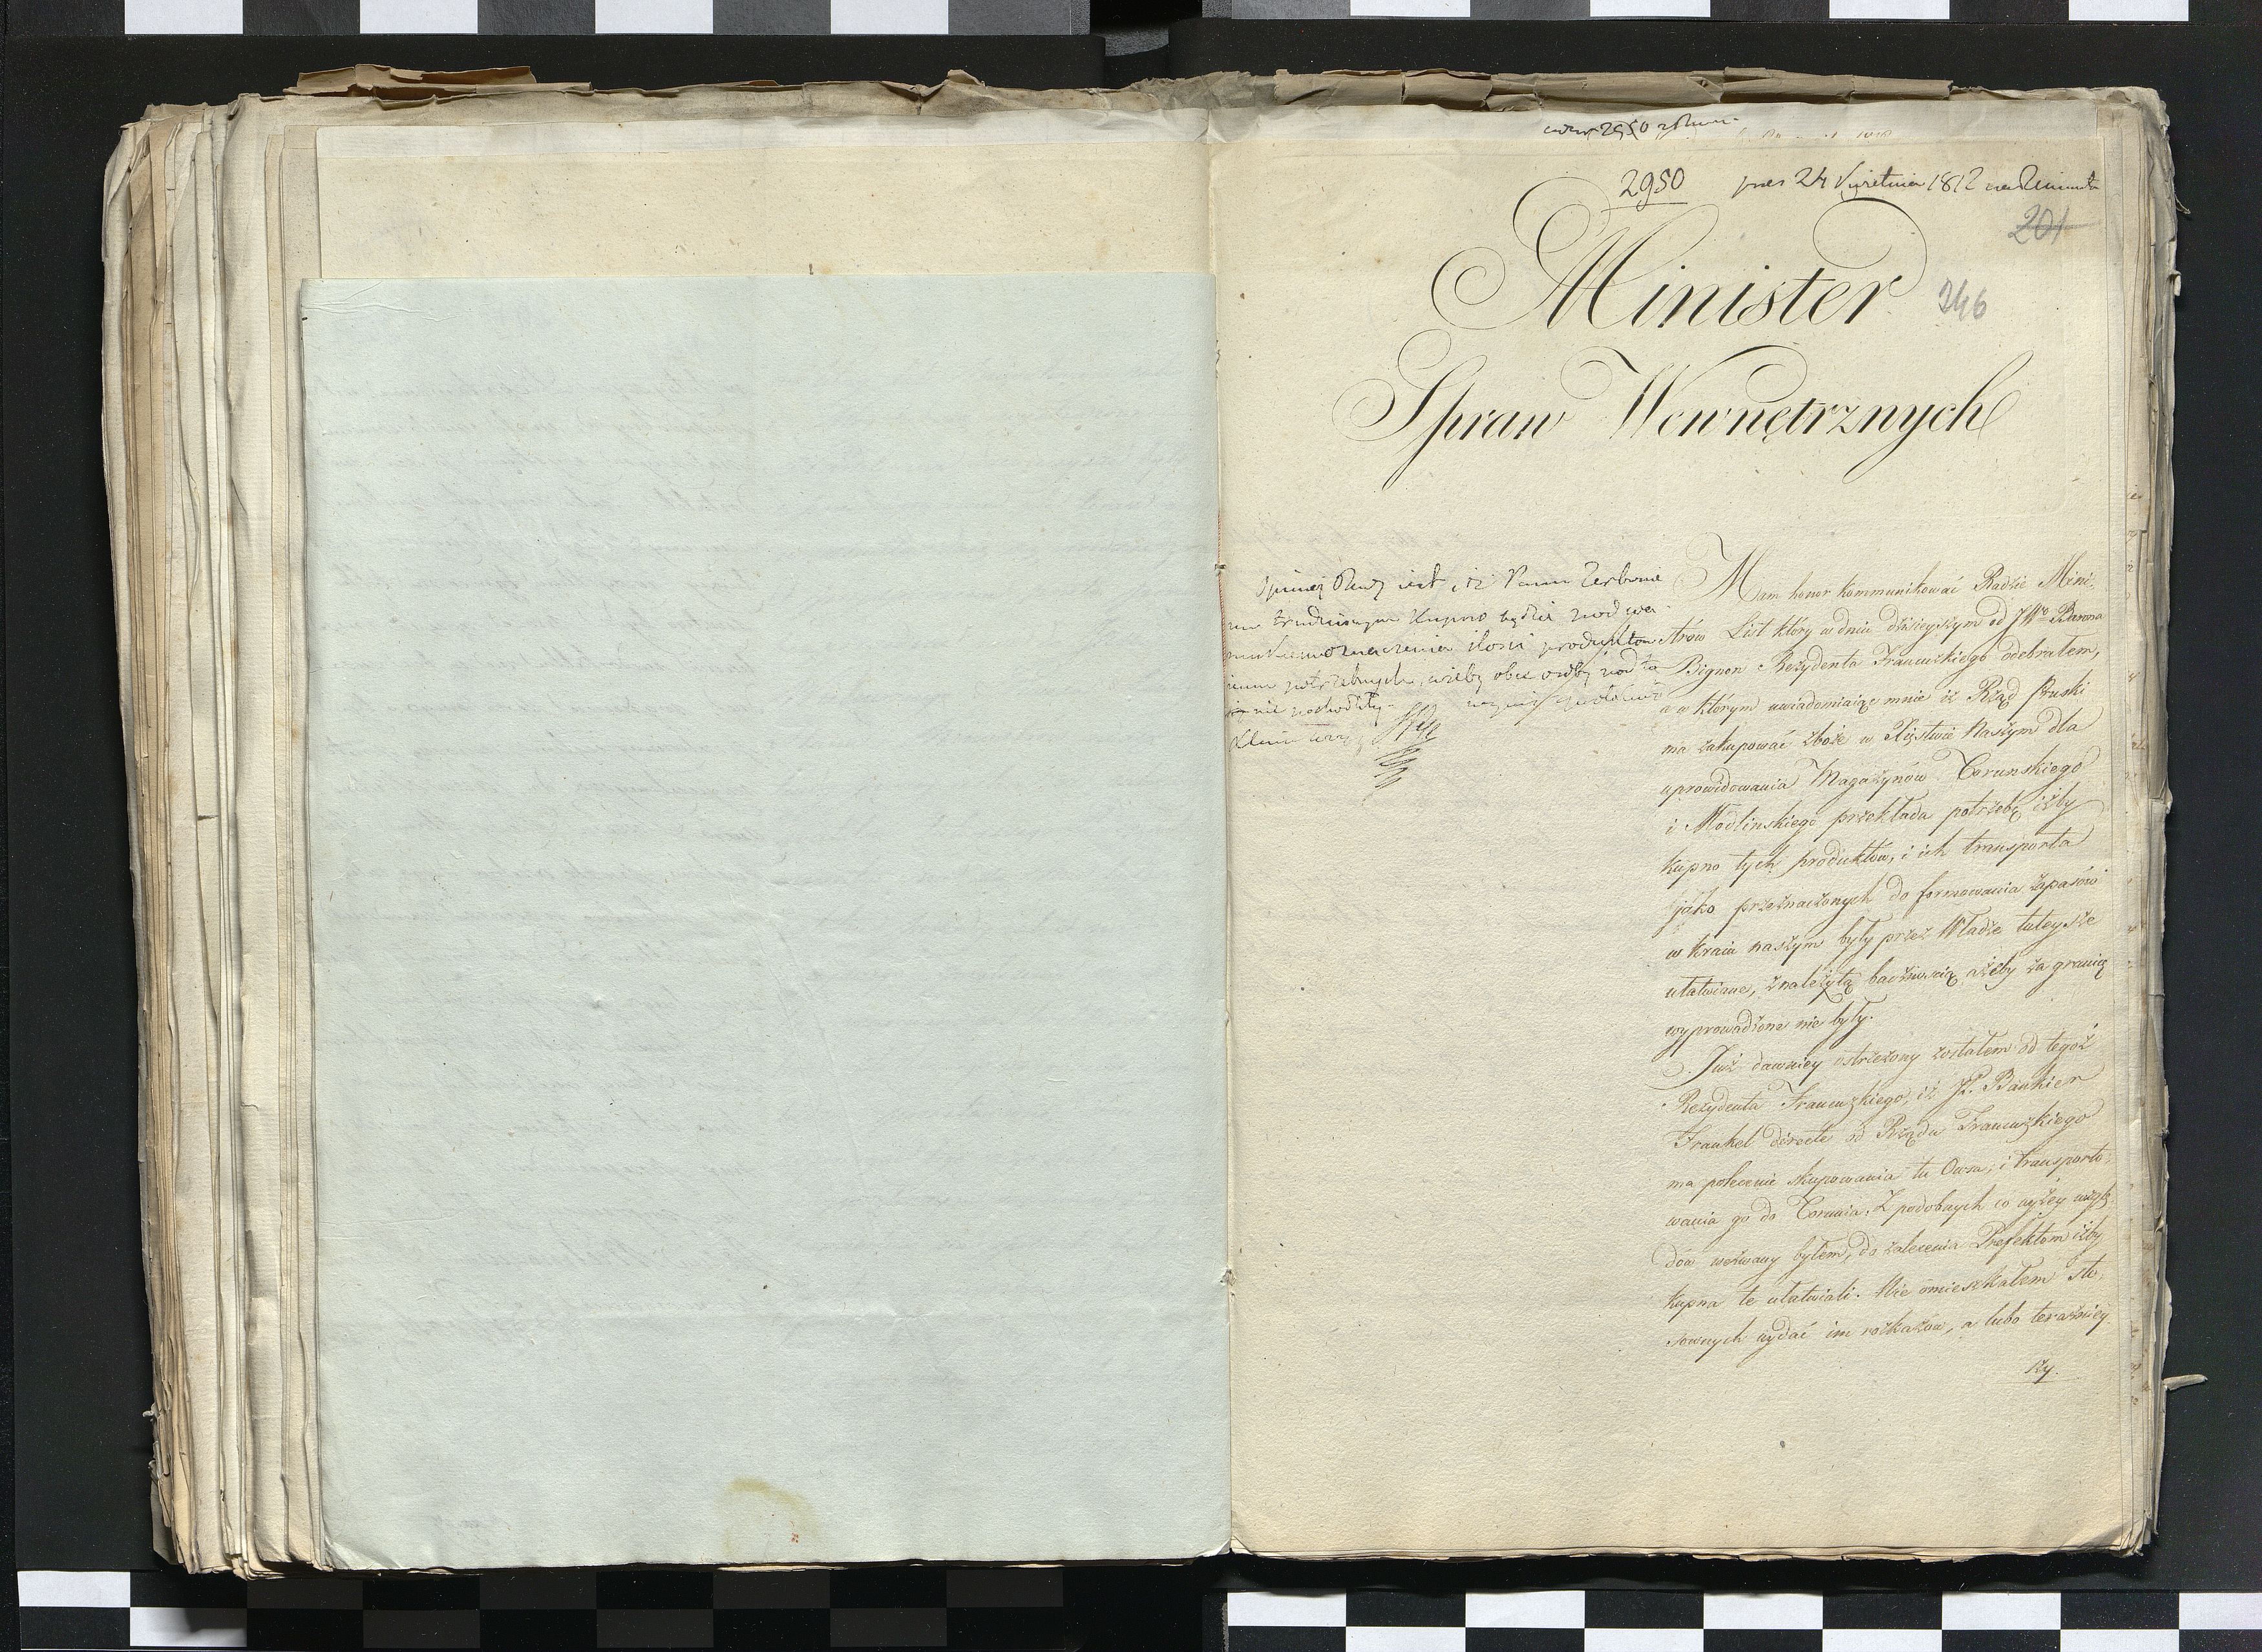 2950
pres 24 Kwietnia 1812
201
Minister
246
Spraw Wewnętrznych
Mam honor kommunikować Radzie Mini-
strów List który w dniu dzisieyszym od JWo Barona
Bignon Rezydenta Francuzkiego odebrałem,
a w którym uwiadomiaiąc mnie iż Rząd Pruski
ma zakupować zboże w Xięstwie Naszym dla
uprowidowania Magazynów Torunskiego
i Modlinskiego przekłada potrzebę iżby
kupno tych produktów, i ich transporta
jako przeznaczonych do formowania zapasów
w kraiu naszym były przez Władze tuteysze
ułatwiane, z należytą bacznością ażeby za granicę
wyprowadzone nie były.
Już dawniey ostrzeżony zostałem od tegoż
Rezydenta Francuzkiego, iż JP. Bankier
Frankel directe od Rządu Francuzkiego
ma polecenie skupowania tu Owsa, i transporto-
wania go do Torunia. Z podobnych co wyżey wzglę-
dów wezwany byłem, do zalecenia Prefektom iżby
kupna te ułatwiali. Nie omieszkałem sto-
sownych wydać im rozkazów, a lubo teraźniey
szy.
Opinią Rady iest, iż Panu Zerboni
trudniącym kupno będzie
oznaczenia ilości produktów
potrzebnych, ażeby obie osoby
nie podwodziły.